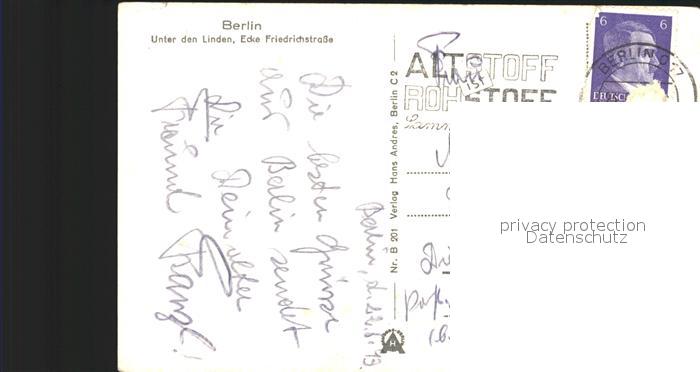 Berlin
Unter den Linden, Ecke Friedrichstraße
Die besten Grüsse
aus Berlin sendet
Dir Dein alter
Freund Franzl!
Berlin, d.
43.
Nr. B 201 Verlag Hans Andres, Berlin C 2
ALTSTOFF
ROHSTOFF
6 6
BERLIN C
privacy protection
Datenschutz